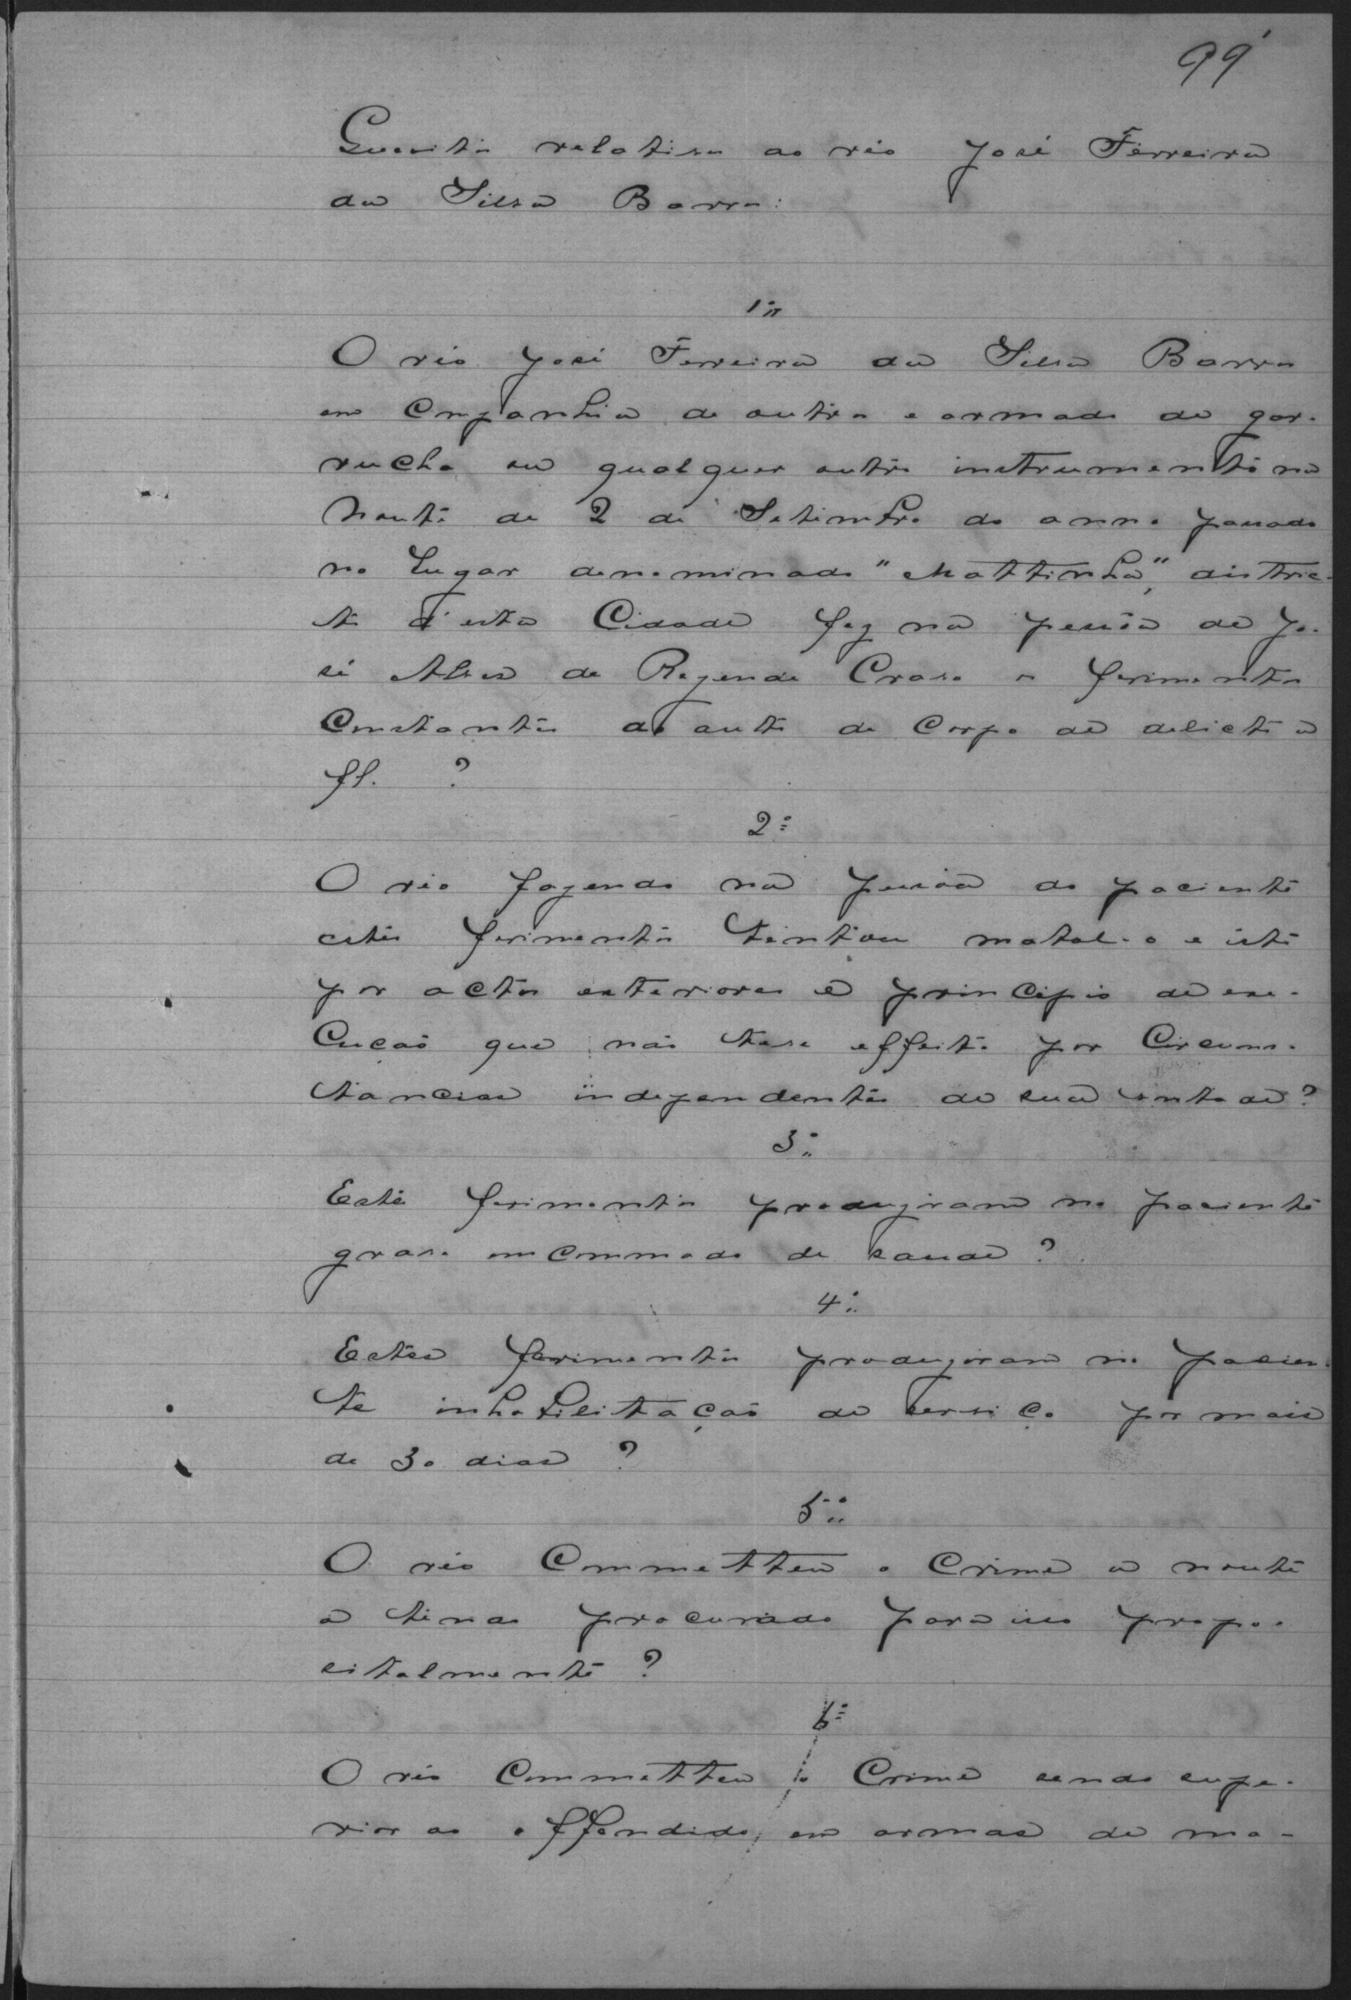 99
Quesitos relativos ao réo José Ferreira
da Silva Barra:
1º
O réo José Ferreira da Silva Barra
em companhia de outro e armado de gar-
rucha ou qualquer outro instrumento na
noute de 2 de Setimbro do anno passado
no lugar denominado "Mattinha", distric-
to d'esta Cidade fez na pessôa de Jo-
sé Alves de Rezende Cravo os ferimentos
constantes do auto de corpo de delicto a
fl. ?
2º
O réo fazendo na pessôa do paciente
estes ferimentos tentou matal-o e isto
por actos exteriores e principio de exe-
cução que não teve effeito por circums-
tancias independentes de sua vontade?
3º
Estes ferimentos produziram no paciente
grave encommodo de saude?
4º
Estes ferimentos produziram no pacien-
te inhabilitação de serviço por mais
de 30 dias ?
5º
O réo commetteu o crime a noute
a tendo procurado para isso propo-
sitalmente ?
6º
O réo commetteu o crime sendo supe-
rior ao offendido, em armas de mo-